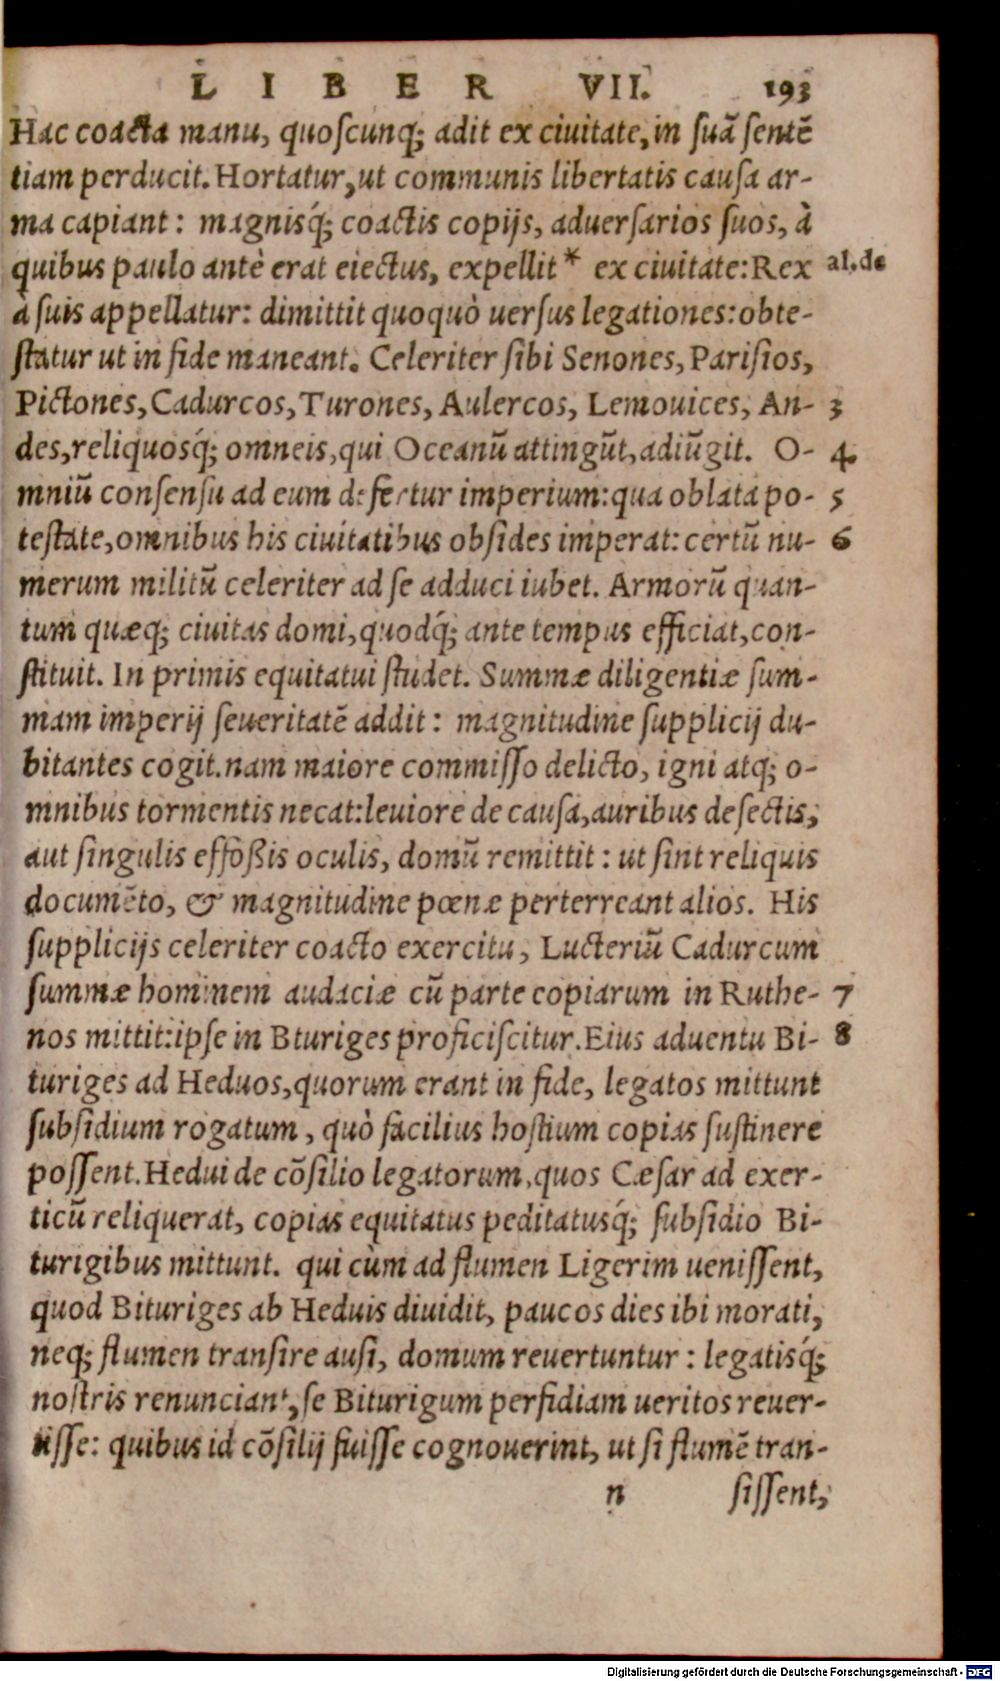 LIBER VII. 193
Hac coacta manu, quoſcunq; adit ex ciuitate, in ſuã ſentẽ
tiam perducit. Hortatur, ut communis libertatis cauſa ar-
ma capiant: magniſq́; coactis copijs, aduerſarios ſuos, à
quibus paulo antè erat eiectus, expellit * ex ciuitate: Rex al. de
à ſuis appellatur: dimittit quoquò uerſus legationes: obte-
ſtatur ut in fide maneant. Celeriter ſibi Senones, Pariſios,
Pictones, Cadurcos, Turones, Aulercos, Lemouices, An- 3
des, reliquoſq́; omneis, qui Oceanũ attingũt, adiũgit. O- 4
mniũ conſenſu ad eum defertur imperium: qua oblata po- 5
teſtate, omnibus his ciuitatibus obſides imperat: certũ nu- 6
merum militũ celeriter ad ſe adduci iubet. Armorũ quan-
tum quæq; ciuitas domi, quodq́; ante tempus efficiat, con-
ſtituit. In primis equitatui ſtudet. Summæ diligentiæ ſum-
mam imperij ſeueritatẽ addit: magnitudine ſupplicij du-
bitantes cogit. nam maiore commiſſo delicto, igni atq; o-
mnibus tormentis necat: leuiore de cauſa, auribus deſectis,
aut ſingulis effoßis oculis, domũ remittit: ut ſint reliquis
documẽto, & magnitudine pœnæ perterreant alios. His
ſupplicijs celeriter coacto exercitu, Lucteriũ Cadurcum
ſummæ hominem audaciæ cũ parte copiarum in Ruthe- 7
nos mittit: ipſe in Bturiges proficiſcitur. Eius aduentu Bi- 8
turiges ad Heduos, quorum erant in fide, legatos mittunt
ſubſidium rogatum, quò facilius hoſtium copias ſuſtinere
poſſent. Hedui de cõſilio legatorum, quos Cæſar ad exer-
ticũ reliquerat, copias equitatus peditatuſq́; ſubſidio Bi-
turigibus mittunt. qui cùm ad flumen Ligerim ueniſſent,
quod Bituriges ab Heduis diuidit, paucos dies ibi morati,
neq; flumen tranſire auſi, domum reuertuntur: legatiſq́;
noſtris renunciant, ſe Biturigum perfidiam ueritos reuer-
tiſſe: quibus id cõſilij fuiſſe cognouerint, ut ſi flumẽ tran-
n ſiſſent,
Digitalisierung gefördert durch die Deutsche Forschungsgemeinschaft - DFG